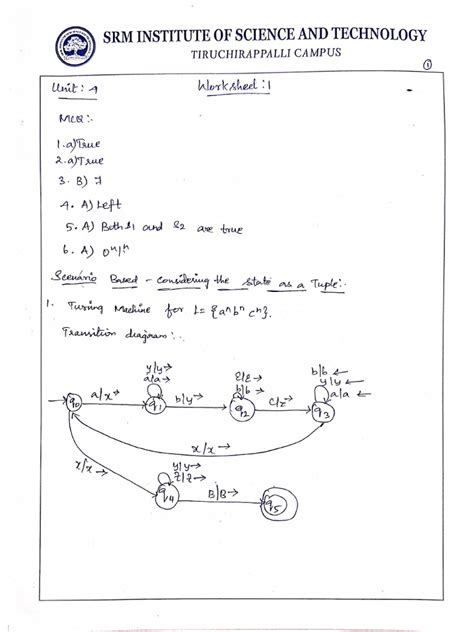 SRM INSTITUTE OF SCIENCE AND TECHNOLOGY
TIRUCHIRAPPALLI CAMPUS
1
Unit : 4
Worksheet : 1
MCQ:-
1. a) True
2. a) True
3. B) 7
4. A) Left
5. A) Both S1 and S2 are true
6. A) 0ⁿ1ⁿ
Scenario Based - Considering the state as a Tuple:-
1. Turing Machine for L= {aⁿ bⁿ cⁿ}.
Transition diagram :-
y/y→
a/a→
z/z→
b/b→
b/b ←
y/y ←
a/a ←
q0
a/x→
q1
b/y→
q2
c/z→
q3
x/x→
x/x→
y/y→
z/z→
q4
B/B→
q5